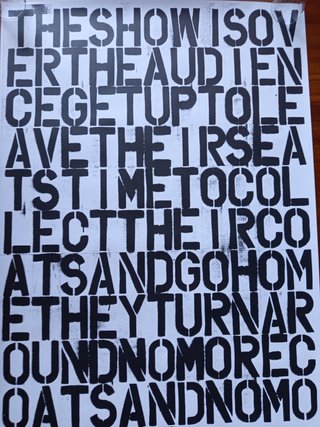 THESHOWISOV
ERTHEAUDIEN
CEGETUPTOLE
AVETHEIRSEA
TSTIMETOCOL
LECTTHEIRCO
ATSANDGOHOM
ETHEYTURNAR
OUNDNOMOREC
OATSANDNOMO